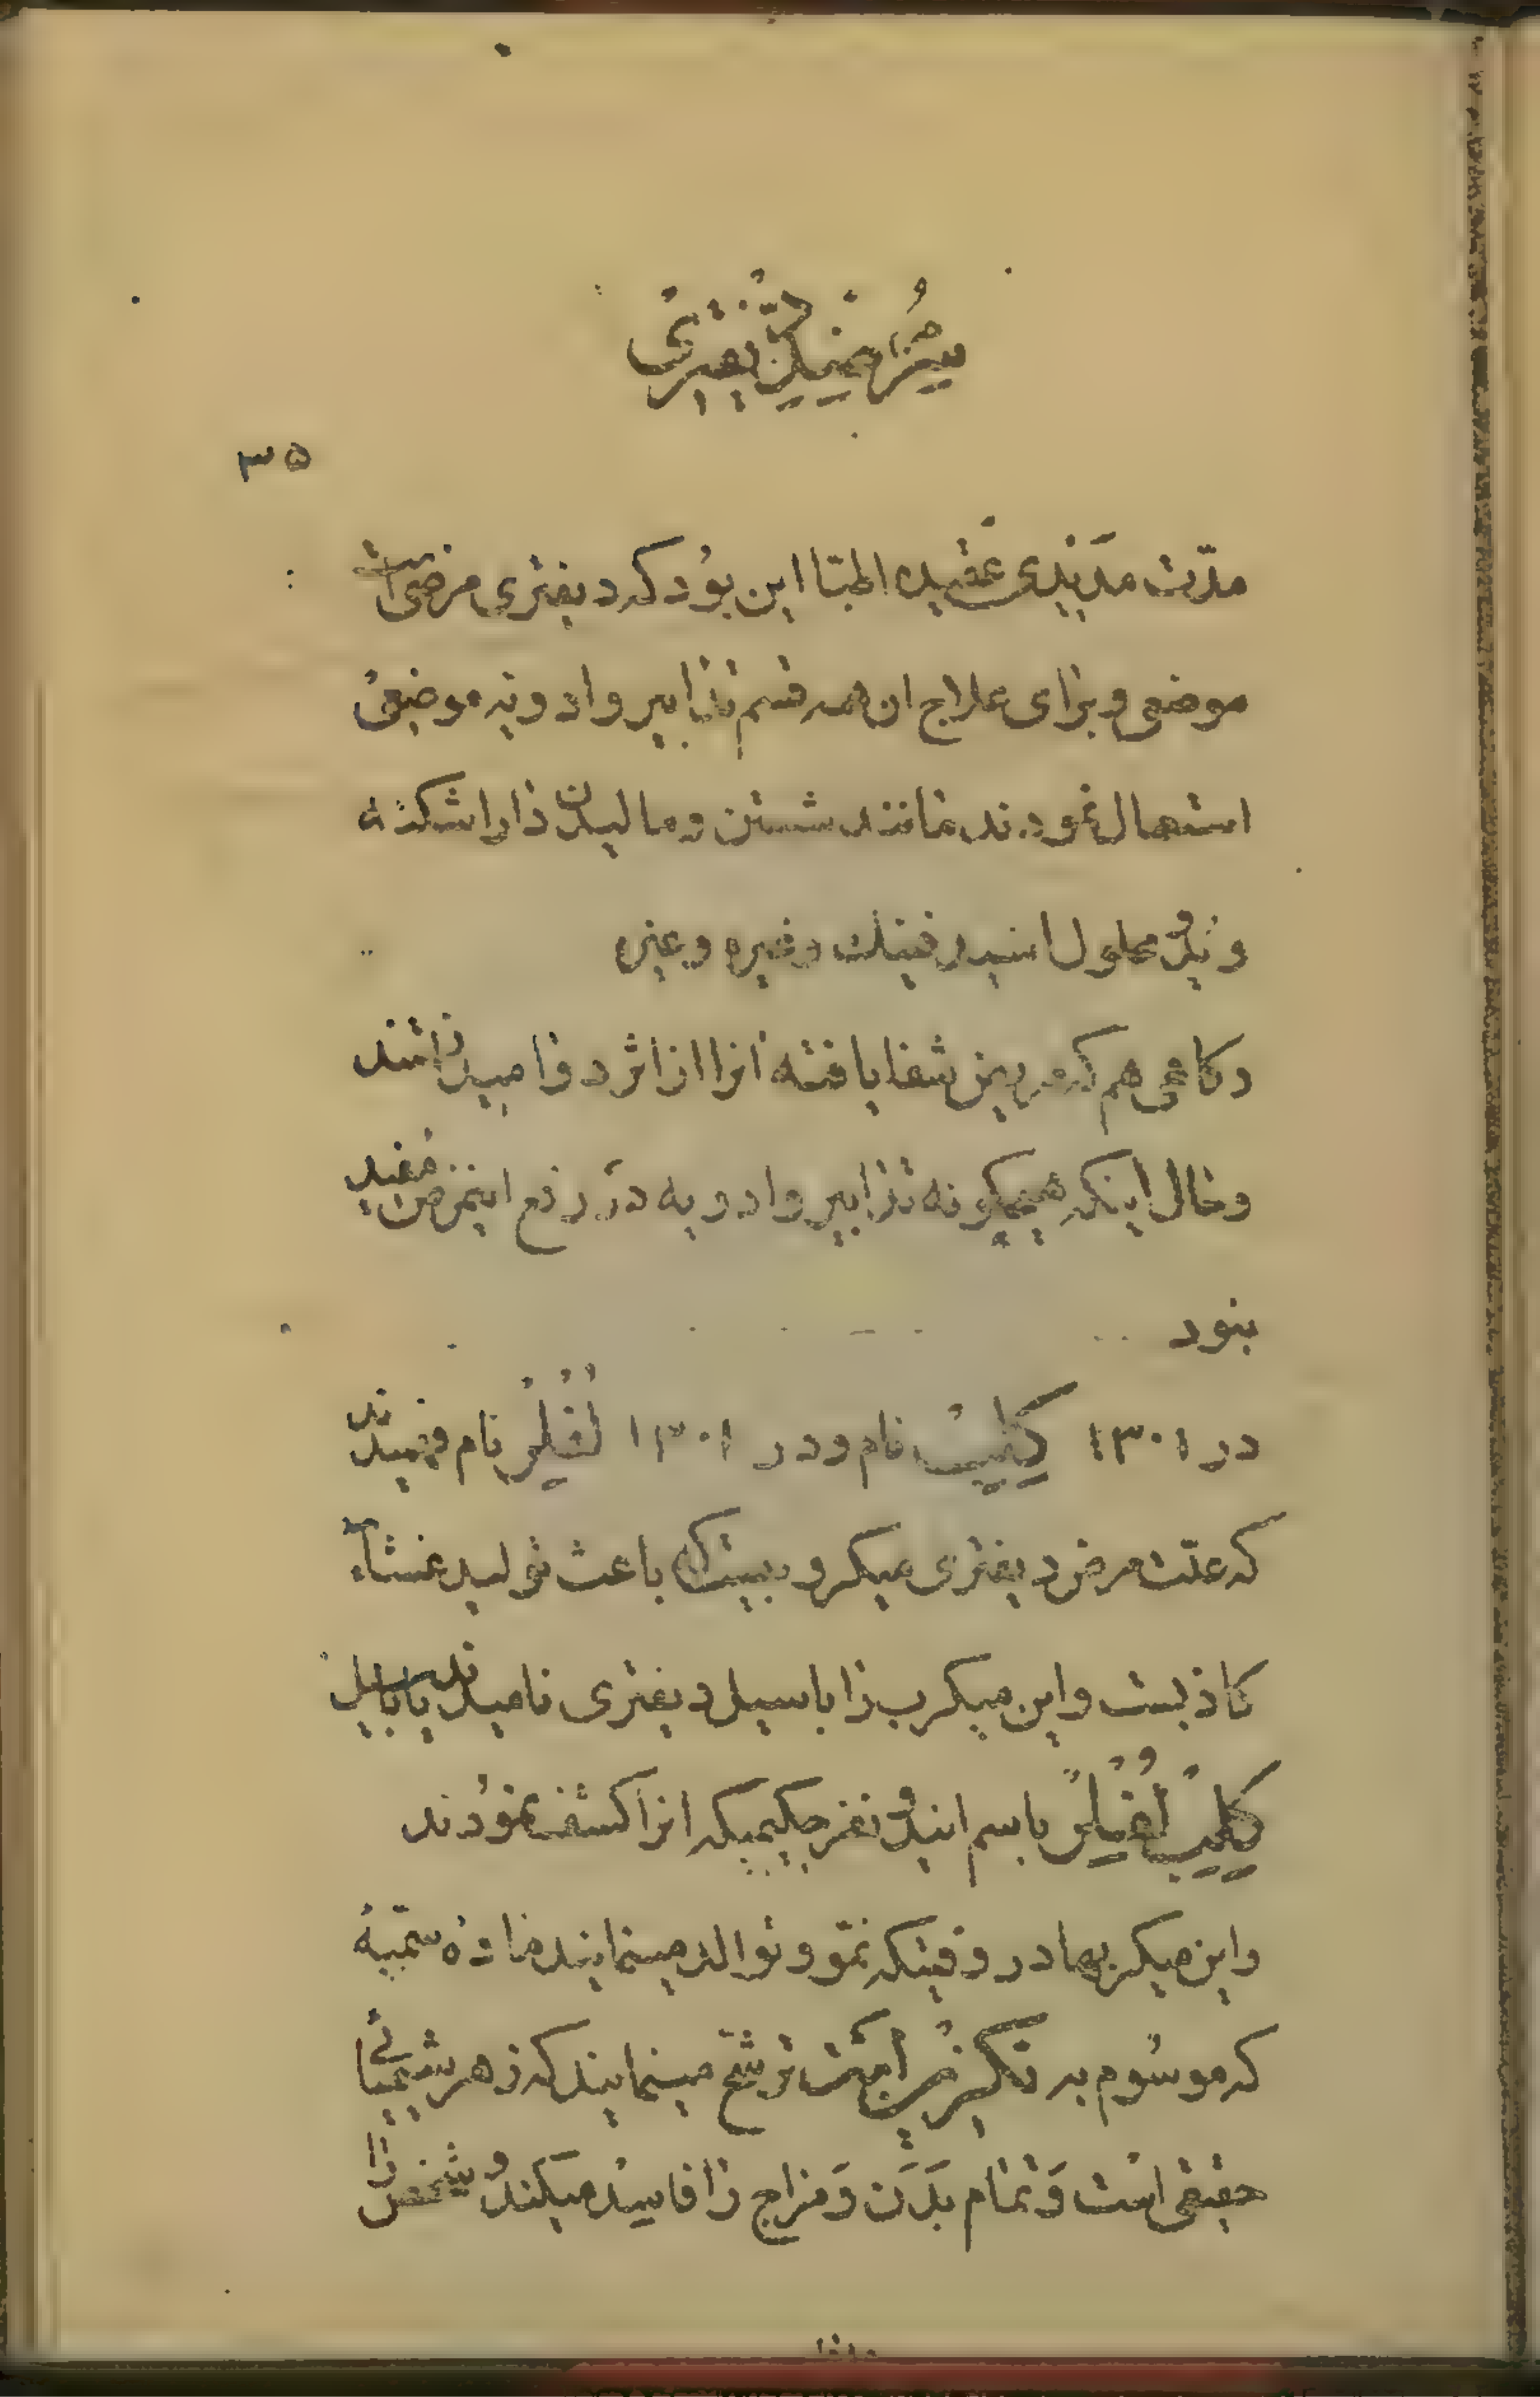 ۳۵
مدّت مدیدی عقیده اطبّا این بود که دیفتری مرضی است
موضعی و برای علاج ان همه قسم تدابیر و ادویه موضعی
استعمال نمودند مانند شستن و مالیدن
و محلول اسید فینک وغیره وغیره
و گاهی هم که مریض شفا یافته انرا از اثر دوا میدانستند
و حال اینکه هیچگونه تدابیر و ادویه در رفع اینمرض مفید
نبود
در ۱۳۰۱ کلبس نام و در ۱۳۰۱ لفلر نام فهمیدند
که علت مرض دیفتری میکروبیست که باعث تولید غشاء
کاذبست و این میکرب را باسیل دیفتری نامیدند یا باسیل
کلبس لفلر باسم ایندو نفر حکیمیکه انرا کشف نمودند
و این میکربها در وقتیکه نموّ و توالد مینمایند مادّه سمّیه
که موسوم به ترشّح مینمایند که زهر شیمیائی
حقیقی است و تمام بدن و مزاج را فاسد میکند و شخص را